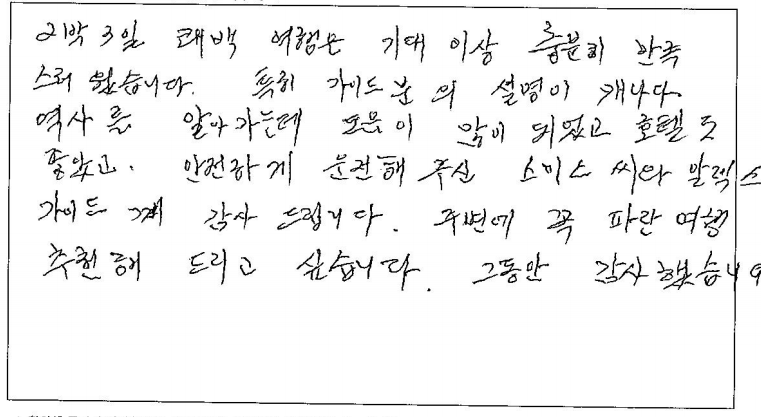 2박 3일 퀘백 여행은 기대 이상 충분히 만족
스러웠습니다. 특히 가이드분의 설명이 캐나다.
역사를 알아가는데 도움이 많이 되었고 호텔도
좋았고. 안전하게 운전해 주신 스미스 씨와 알렉스
가이드께 감사 드립니다. 주변에 꼭 파란 여행
추천해 드리고 싶습니다. 그동안 감사했습니다